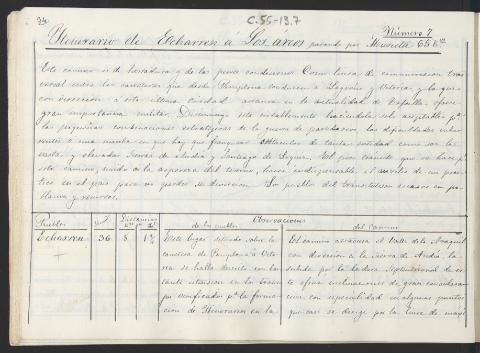 94
C.55-13.7
Número 7
Itinerario de Echarren á Los Arcos pasando por Murieta 65 k
Este camino es de herradura y de las peores condiciones. Como linea de comunicacion tras
versal entre las carreteras que desde Pamplona conducen á Logroño y Vitoria, y la que
con direccion á esta ultima ciudad arranca en la actualidad de Tafalla, ofrece
gran importancia militar. Disminuye esta notablemente haciendola solo aceptable pª
las pequeñas combinaciones estratégicas de la guerra de partidarios, las dificultades inhe
rentes á una marcha en que hay que franquear obstaculos de tanta entidad como son la
vasta y elevadas Sierras de Andia y Santiago de Loquiz. El poco transito que se hace pʳ
este camino, unido á la aspereza del terreno, hacen indispensable el auxilio de un prac
tico en el pais para no perder la direccion. Los pueblos del transito son escasos en po
blacion y recursos.
Pueblos
Distancias
Observaciones
de los pueblos
del Camino
Echarren 36 8 1¾
Este lugar situado sobre la
carretera de Pamplona á Vito
ria se halla descrito en las
tante estension en los traba
jos verificados pª la forma
cion de Itinerarios en la
El camino atraviesa el Valle de Araquil
con direccion á la sierra de Andia, la
subida por la ladera Septentrional de es
ta ofrece inclinaciones de gran considera
cion, con especialidad en algunos puntos
que casi se dirige por la linea de maxi